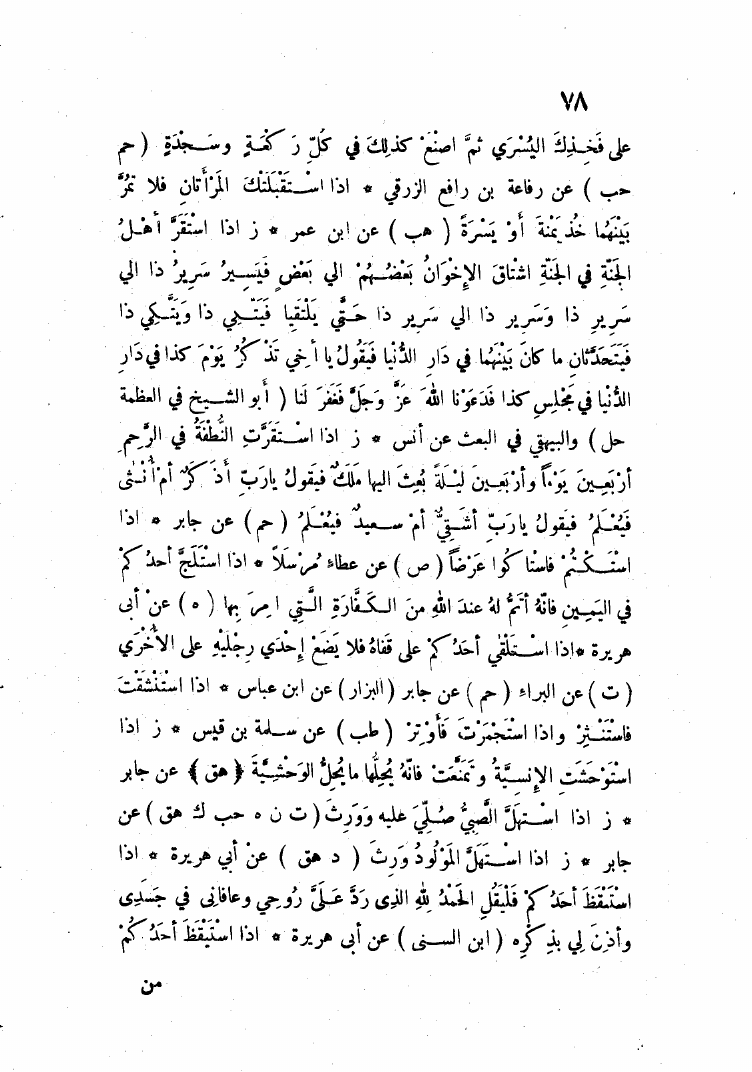 ٧٨
على فَخِذِكَ اليُسْرَي ثمَّ اصنَعْ كذلِكَ في كُلّ رَكْعَةٍ وسَجْدَةٍ ( حم
حب ) عن رفاعة بن رافع الزرقي * اذا اسْتَقْبَلَتْكَ المَرْأتانِ فلا تمُرَّ
بَيْنَهُما خُذ يَمْنَةً أوْ يَسْرَةً ( هب ) عن ابن عمر * ز اذا اسْتَقَرَّ أهْلُ
الجَنَّةِ في الجَنَّةِ اشْتاقَ الإِخْوَانُ بَعْضُهُمْ الي بَعْضٍ فَيَسِيرُ سَرِيرُ ذا الي
سَرِيرِ ذا وَسَرِير ذا الي سرير ذا حَتَّي يَلْتَقِيا فَيَتَّكِي ذا وَيَتَّكِي ذا
فَيَتَحَدَّثانِ ما كانَ بَيْنَهُما في دَارِ الدُّنْيا فَيَقُولُ يا أخِي تَذْكُرُ يَوْمَ كذا في دَارِ
الدُّنْيا في مَجْلِسِ كذا فَدَعَوْنا اللهَ عَزَّ وَجَلَّ فَغَفَرَ لَنا ( أبو الشيخ في العظمة
حل ) والبيهقي في البعث عن أنس * ز اذا اسْتَقَرَّتِ النُّطْفَةُ في الرَّحِمِ
أرْبَعِينَ يَوْماً وأرْبَعِينَ لَيْلَةً بُعِثَ اليها مَلَكٌ فيَقولُ يارَبِّ أذَكَرٌ أمْ أُنْثى
فَيُعْلَمُ فيَقولُ يارَبِّ أشَقِيٌّ أمْ سعيدٌ فيُعْلَمُ ( حم ) عن جابر * اذا
اسْتَكْتُمْ فاستاكُوا عَرْضاً ( ص ) عن عطاء مُرْسَلاً * اذا اسْتَلَجَّ أحدُكمْ
في اليَمِينِ فانّهُ أثَمُ لهُ عندَ اللهِ مِنَ الكَفَّارَةِ الَّتِي أُمِرَ بها ( ه ) عنْ أبى
هريرة * اذا اسْتَلْقَي أحَدُكمْ على قَفاهُ فلا يَضَعْ إحْدَي رِجْلَيْهِ على الأُخْرَي
( ت ) عن البراء ( حم ) عن جابر ( البزار ) عن ابن عباس * اذا اسْتَنْشَقْتَ
فاسْتَنْثِرْ واذا اسْتَجْمَرْتَ فَأوْتِرْ ( طب ) عن سلمة بن قيس * ز اذا
اسْتَوْحَشَتِ الإِنْسِيَّةُ وتَمَنَّعَتْ فانّهُ يُحِلُّها ما يُحِلُّ الوَحْشِيَّةَ ﴿ هق ﴾ عن جابر
* ز اذا اسْتهَلَّ الصَّبِيُّ صُلِّيَ عليه وَوَرِثَ ( ت ن ه حب ك هق ) عن
جابر * ز اذا اسْتهَلَّ المَوْلُودُ وَرِثَ ( د هق ) عنْ أبي هريرة * اذا
اسْتَيْقَظَ أحَدُكمْ فَلْيَقُلِ الحَمْدُ لِلهِ الذى رَدَّ عَلَيَّ رُوحِي وعافانى في جَسَدِى
وأذِنَ لِي بذِكْرِه ( ابن السنى ) عن أبى هريرة * اذا اسْتَيْقَظَ أحَدُكُمْ
من